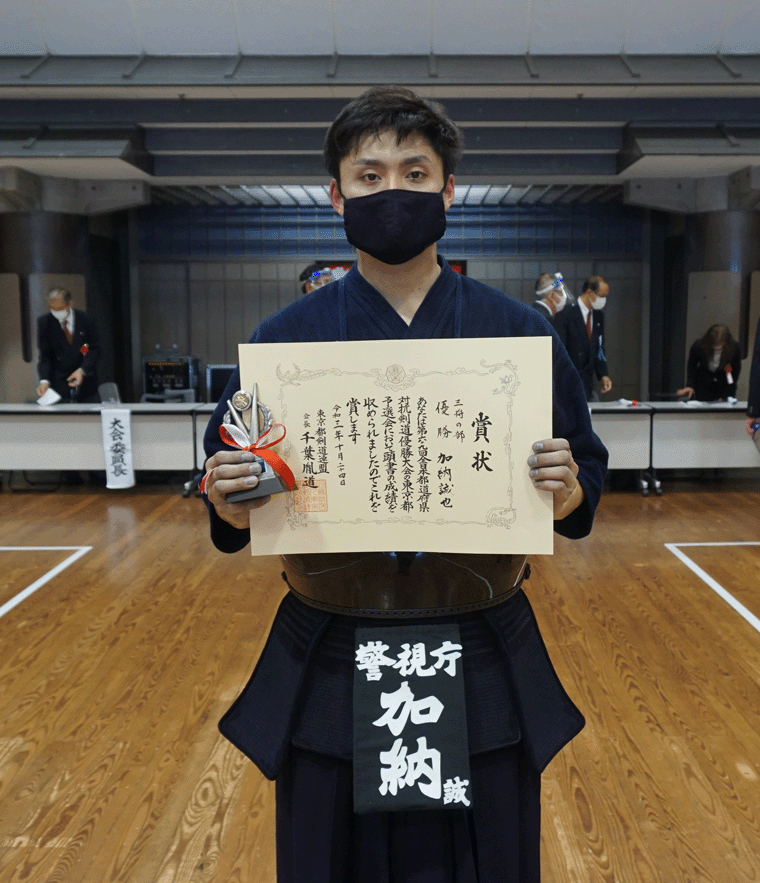 賞状
三将の部
優勝 加納誠也
あなたは第六九回全日本都道府県
対抗剣道優勝大会の東京都
予選会において頭書の成績を
収められましたのでこれを
賞します
令和三年十月二四日
東京都剣道連盟
会長 千葉胤道
大会委員長
警視庁
加納
誠